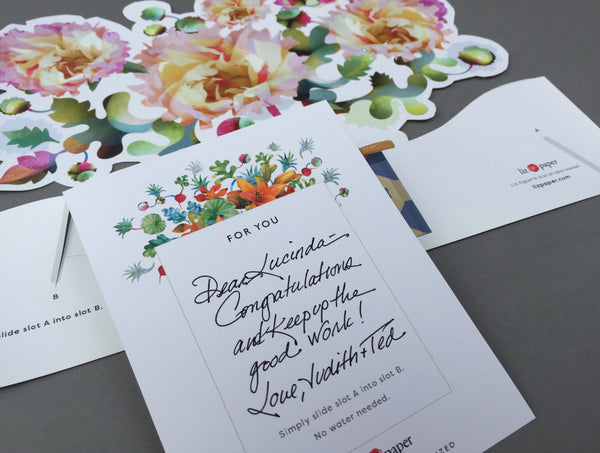 A
liz paper
lizpaper.com
B
slide slot A into slot B.
FOR YOU
Dear Lucinda—
Congratulations
and keep up the
good work!
Love, Judith + Ted
Simply slide slot A into slot B.
No water needed.
paper